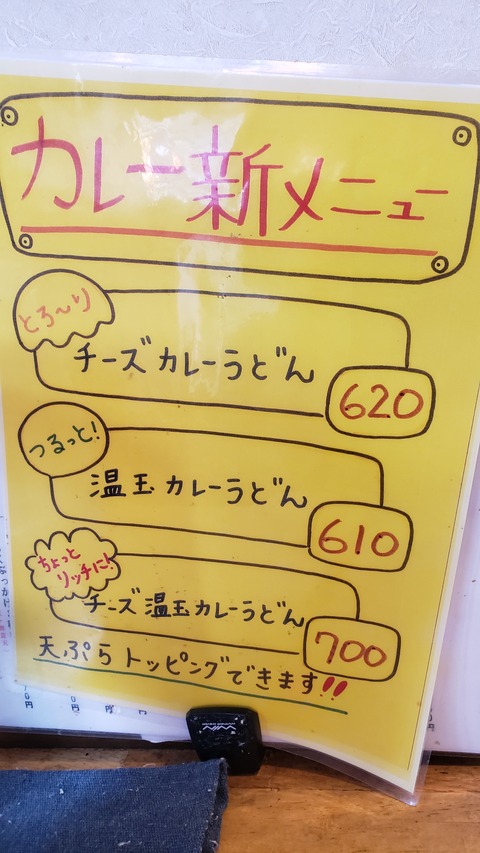 カレー新メニュー
とろ〜り
チーズカレーうどん
620
つるっと!
温玉カレーうどん
610
ちょっと
リッチに!
チーズ温玉カレーうどん
700
天ぷらトッピングできます!!